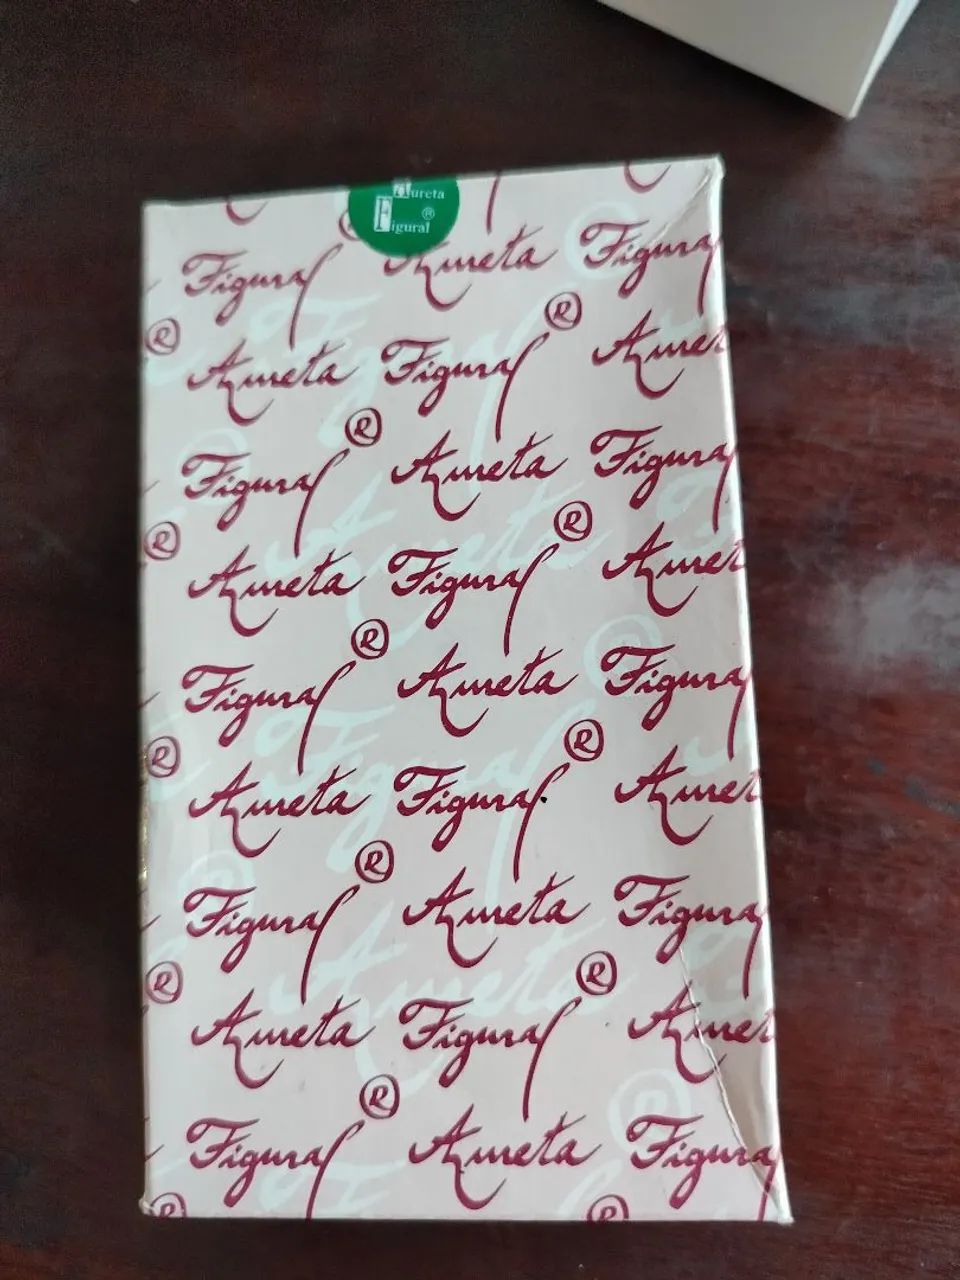 Aureta
Figural ®
Figural Aureta Figural
® Aureta Figural ® Auret
Figural ® Aureta Figural
® Aureta Figural ® Auret
Figural ® Aureta Figural
® Aureta Figural ® Auret
Figural ® Aureta Figural
® Aureta Figural ® Auret
Figural ® Aureta Figural
® ®